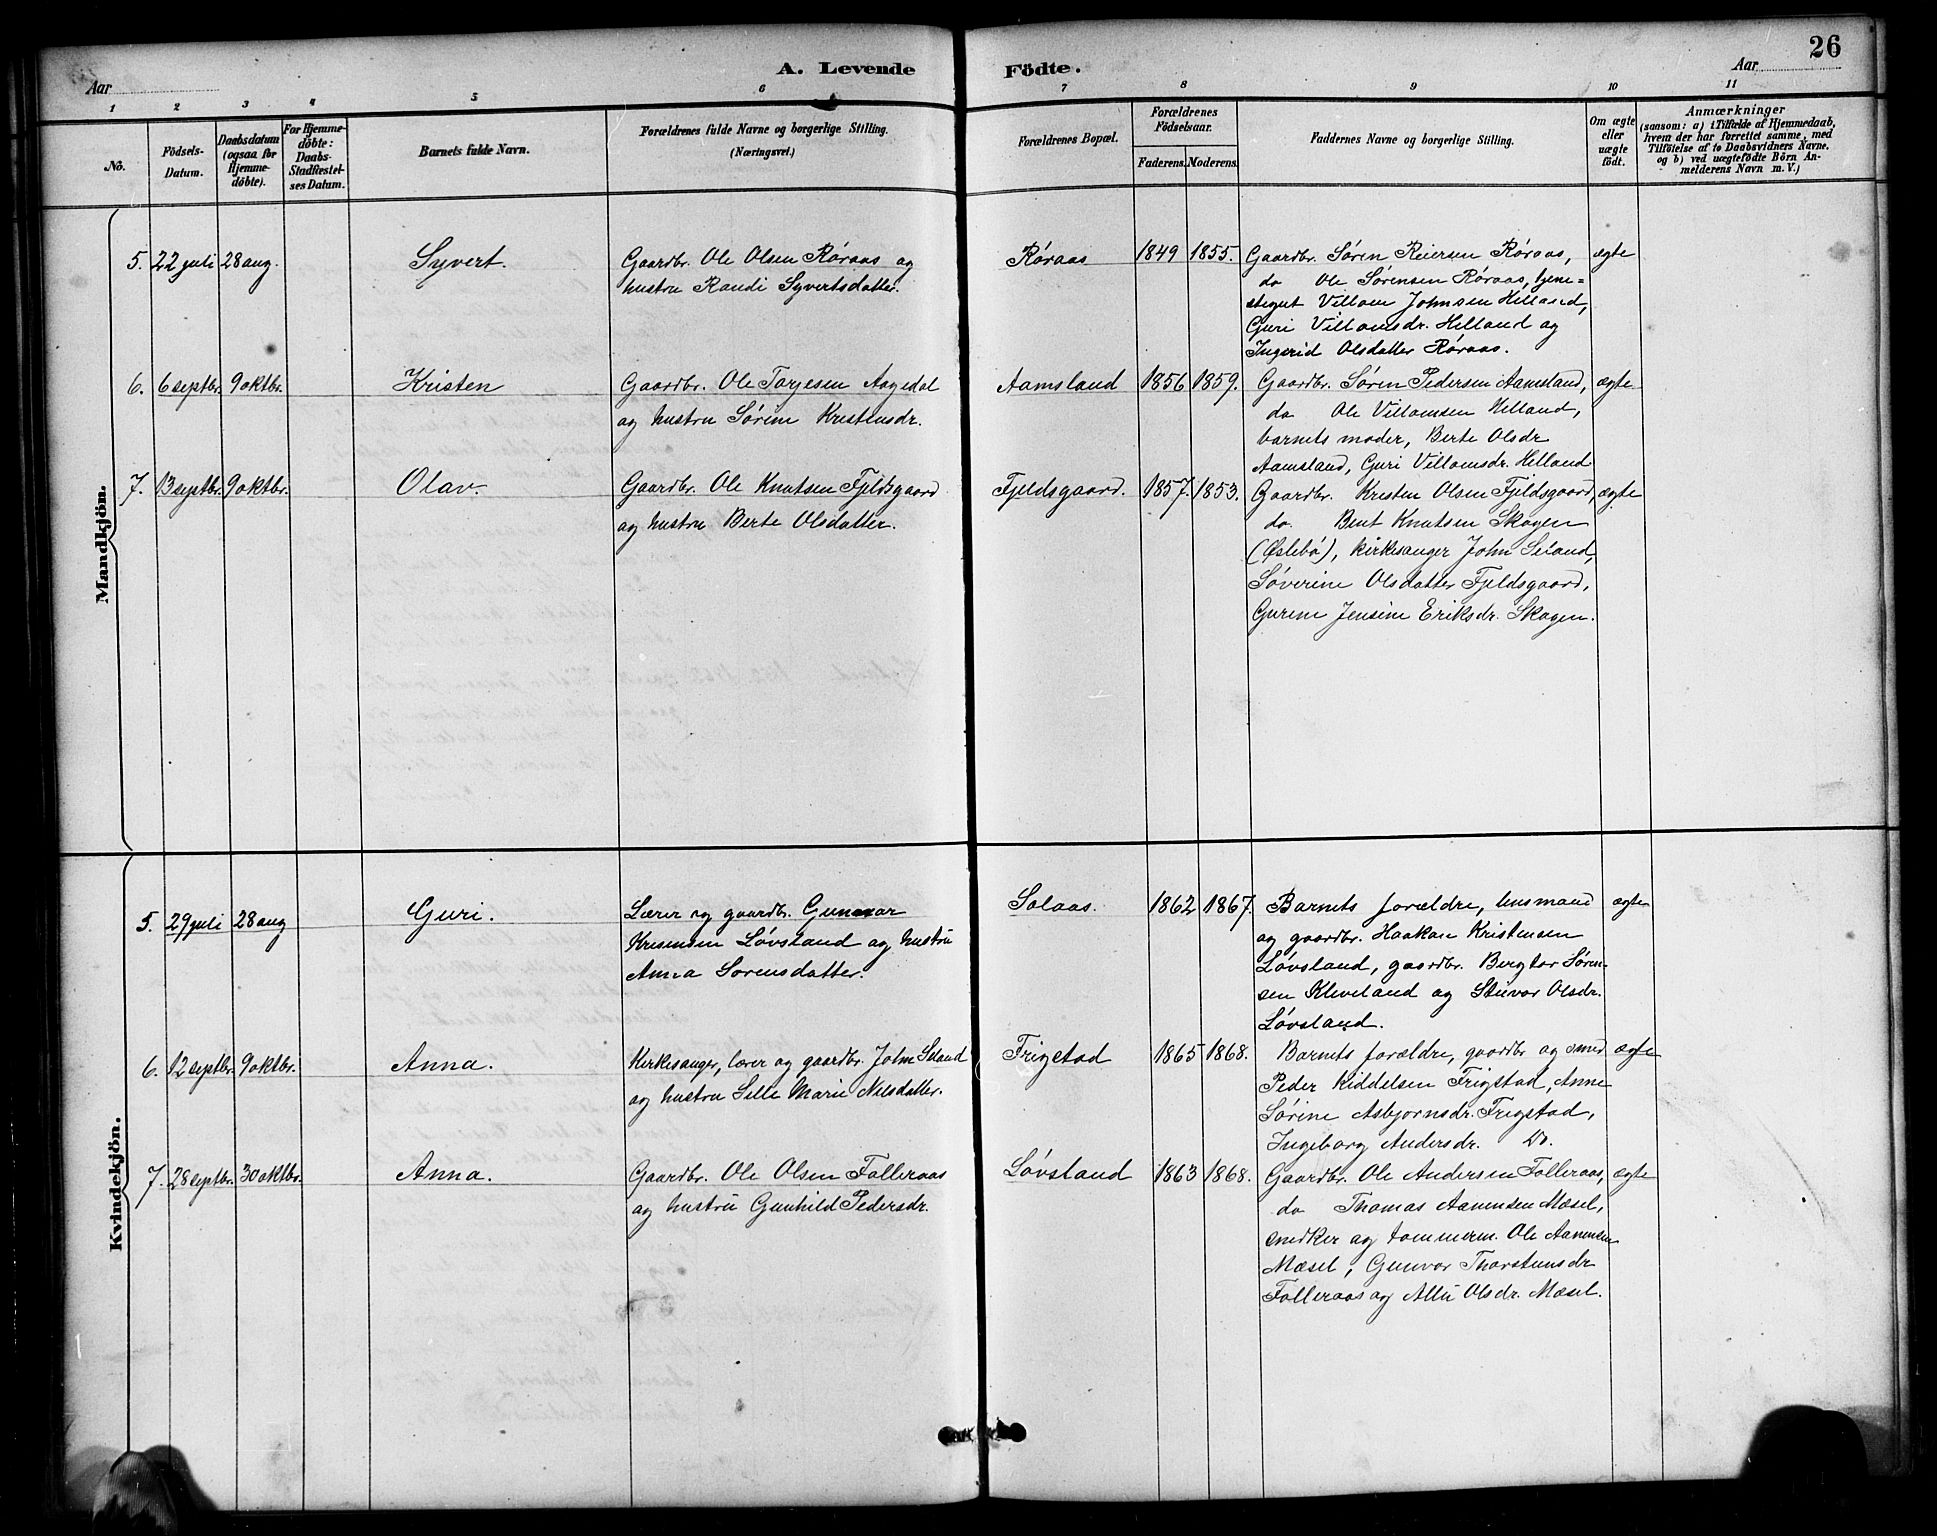 26
A. Levende Födte.
Aar
Aar
1 2 3 4 5 6 7 8 9 10 11
No.
Födsels-
Datum.
Daabsdatum
(ogsaa for
Hjemme-
döbte).
For Hjemme-
döbte:
Daabs-
Stadfæstel-
ses Datum.
Barnets fulde Navn.
Forældrenes fulde Navne og borgerlige Stilling.
(Næringsvei.)
Forældrenes Bopæl.
Forældrenes
Födselsaar.
Faderens. Moderens.
Faddernes Navne og borgerlige Stilling.
Om ægte
eller
uægte
födt.
Anmærkninger
(sansom: a) i Tilfælde af Hjemmedaab,
hvem der har forrettet samme, med
Tilföielse af to Daabsvidners Navne,
og b) ved uægtefödte Börn An-
melderens Navn m. V.)
Mandkjön.
5. 22 juli 28 aug. Syvert.
Gaardbr. Ole Olsen Røraas og
hustru Randi Syvertsdatter.
Røraas 1849 1855.
Gaardbr. Søren Reiersen Røraas,
do Ole Sørensen Røraas, tjene=
stegut Villom Johnsen Helland,
Guri Villomsdr. Helland og
Ingerid Olsdatter Røraas.
ægte
6. 6 septbr. 9 oktbr. Kristen
Gaardbr. Ole Tarjesen Aagedal
og hustru Sørine Kristensdr.
Aamsland 1856 1859.
Gaardbr. Søren Pedersen Aamsland,
do Ole Villomsen Helland,
barnets moder, Berte Olsdr
Aamsland, Guri Villomsdr. Helland
ægte
7. 13 septbr. 9 oktbr. Olav.
Gaardbr. Ole Knutsen Fjeldsgaard
og hustru Berte Olsdatter.
Fjeldsgaard. 1857. 1853.
Gaardbr. Kristen Olsen Fjeldsgaard,
do. Bent Knutsen Skogen
(Øslebø), kirkesanger John Seland,
Søverine Olsdatter Fjeldsgaard,
Gurine Jensine Eriksdr. Skogen.
ægte
Kvindekjön.
5. 29 juli 28 aug Guri.
Lærer og gaardbr. Gunnar
Kristensen Løvsland og hustru
Anna Sorensdatter.
Solaas. 1862 1867.
Barnets forældre, lensmand
og gaardbr. Haakon Kristensen
Løvsland, gaardbr. Bergtor Søren-
sen Kleveland og Olsdr.
Løvsland.
ægte
6. 12 septbr. 9 oktbr. Anna.
Kirkesanger, lærer og gaardbr. John Seland
og hustru Sille Marie Nilsdatter.
Frigstad 1865 1868.
Barnets forældre, gaardbr og smed
Peder Kiddelsen Frigstad, Anne
Sørine Asbjornsdr. Frigstad,
Ingeborg Andersdr. Do.
ægte
7. 28 septbr. 30 oktbr. Anna.
Gaardbr. Ole Olsen Folleraas
og hustru Gunhild Pedersdr.
Løvsland 1863 1868.
Gaardbr. Ole Andersen Folleraas,
do Thomas Aanensen Mæsel,
snedker og tommerm. Ole Aanensen
Mæsel, Gunvor Thorstensdr
Folleraas og Olsdr. Mæsel.
ægte